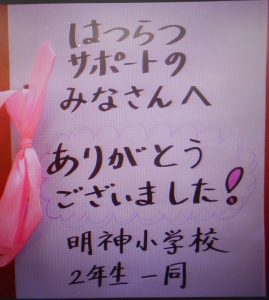 はつらつ
サポートの
みなさんへ
ありがとう
ございました!
明神小学校
2年生一同